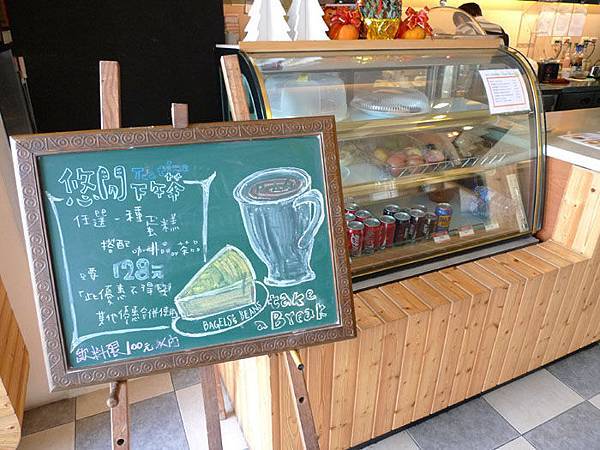 悠閒 Tea time
下午茶
任選一種蛋糕
搭配 咖啡品or茶品
只要 128元
「此優惠不得與
其他優惠合併使用
飲料限100元以內
BAGELS & BEANS
take
a Break